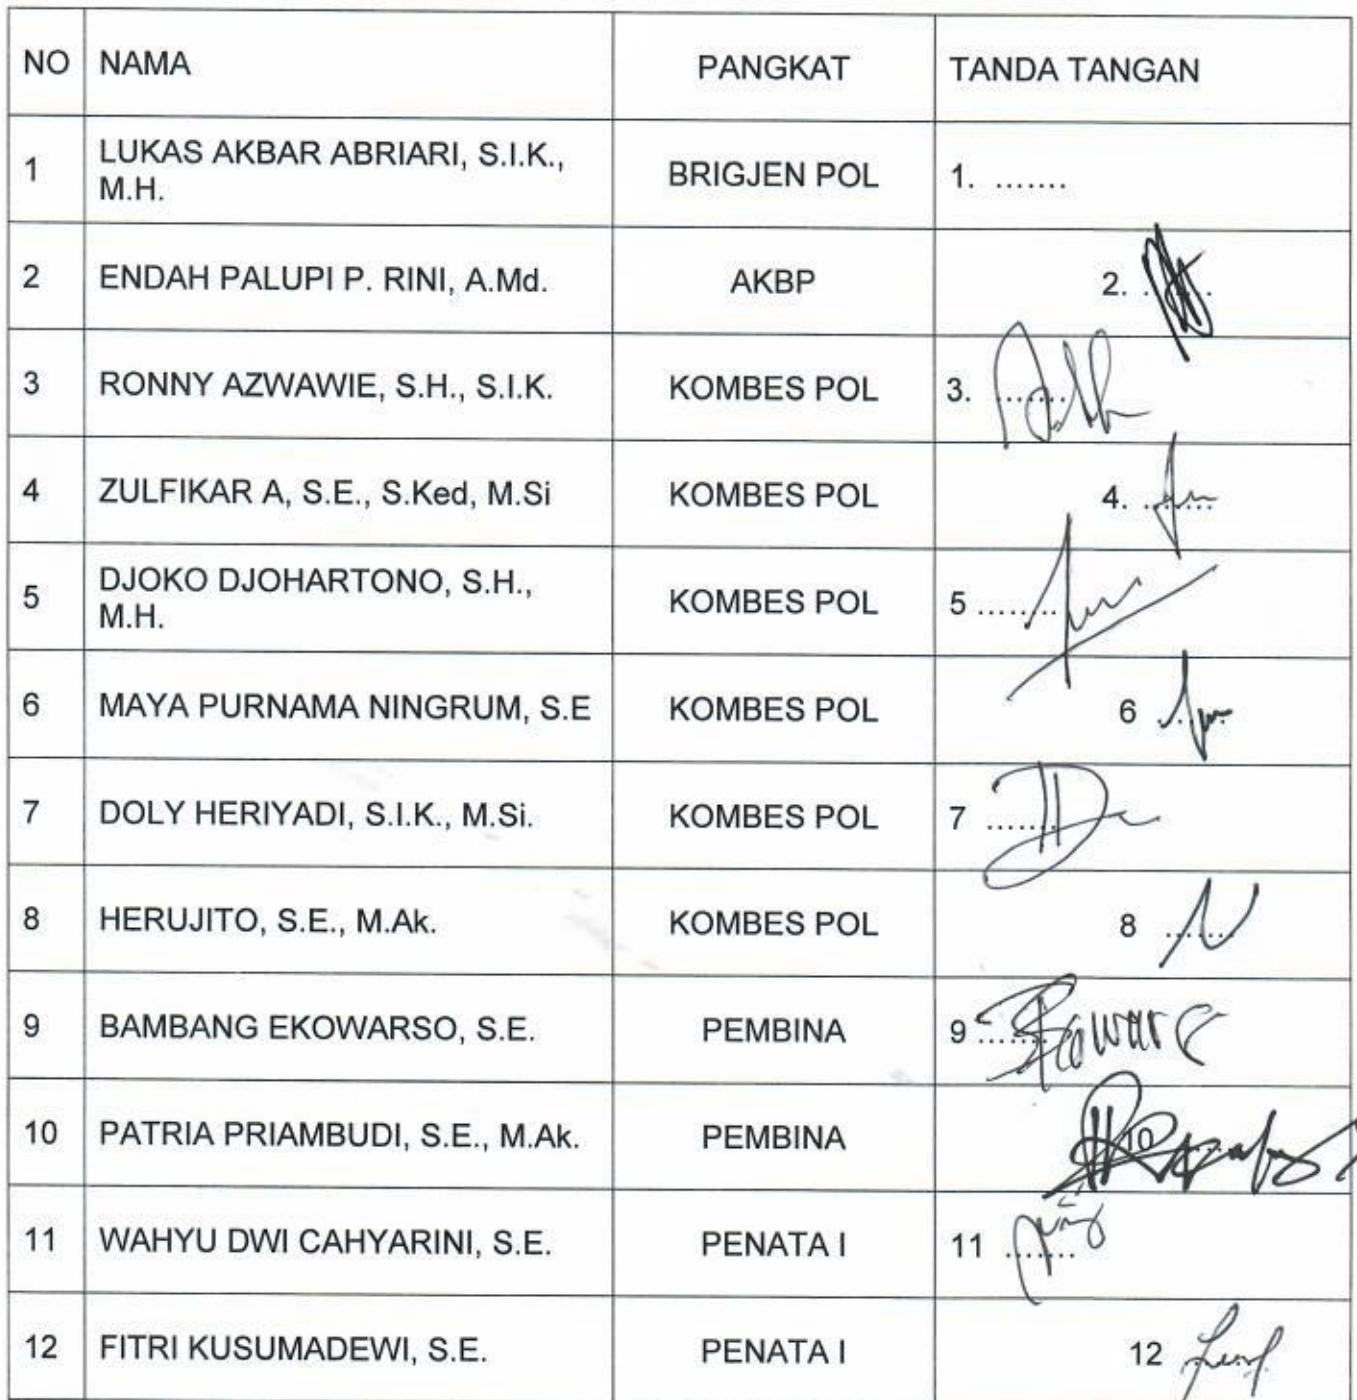 NO NAMA PANGKAT TANDA TANGAN
1 LUKAS AKBAR ABRIARI, S.I.K., M.H. BRIGJEN POL 1. .......
2 ENDAH PALUPI P. RINI, A.Md. AKBP 2.
3 RONNY AZWAWIE, S.H., S.I.K. KOMBES POL 3. .......
4 ZULFIKAR A, S.E., S.Ked, M.Si KOMBES POL 4. .......
5 DJOKO DJOHARTONO, S.H., M.H. KOMBES POL 5 .......
6 MAYA PURNAMA NINGRUM, S.E KOMBES POL 6 .......
7 DOLY HERIYADI, S.I.K., M.Si. KOMBES POL 7 .......
8 HERUJITO, S.E., M.Ak. KOMBES POL 8 .......
9 BAMBANG EKOWARSO, S.E. PEMBINA 9 .......
10 PATRIA PRIAMBUDI, S.E., M.Ak. PEMBINA 10
11 WAHYU DWI CAHYARINI, S.E. PENATA I 11 .......
12 FITRI KUSUMADEWI, S.E. PENATA I 12 .......